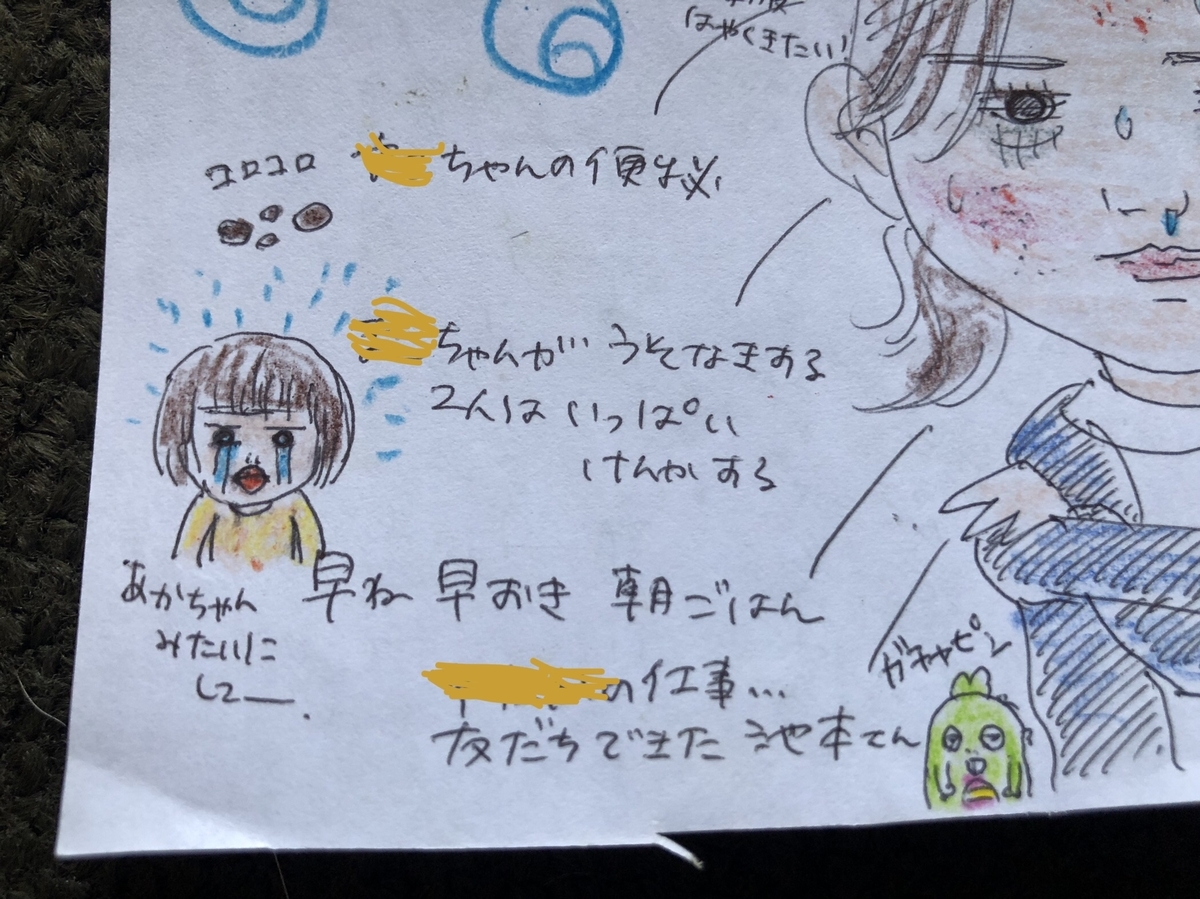 はやくきたい
コロコロ
ちゃんの便は必
ちゃんが うそなきする
いっぱい
けんかする
あかちゃん
みたいに
して
早ね 早おき 朝ごはん
の仕事...
ガチャピン
友だちできた 池本てん